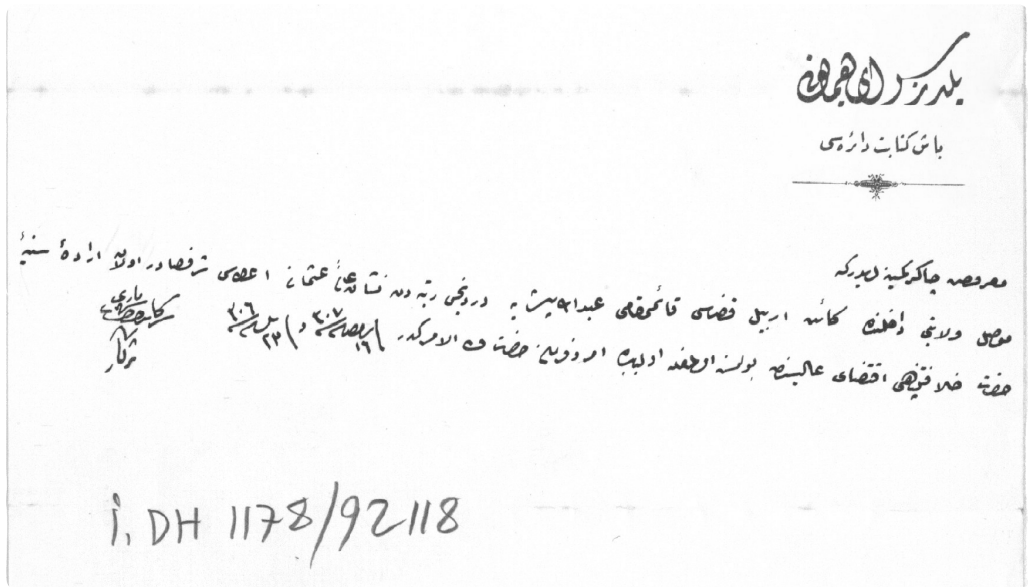 يلدز سراى همايونى
باش كتابت دائره سى
معروض چاكر كمينه لريدركه
موصل ولايتى داخلنده كائن اربيل قضاسى قائممقامى عبدالله پاشايه دردنجى رتبه دن نشان عثمانى اعطاسى شرفصادر اولان اراده سنيه
حضرت خلافتپناهى اقتضاى عاليسندن بولنمش اولمغله اولبابده امر وفرمان حضرت ولى الامركدر ١٦ ٣٠٧ و ٢٣ ٣٠٦
سركاتب حضرت شهريارى
ثريا
İ. DH 1178/92118